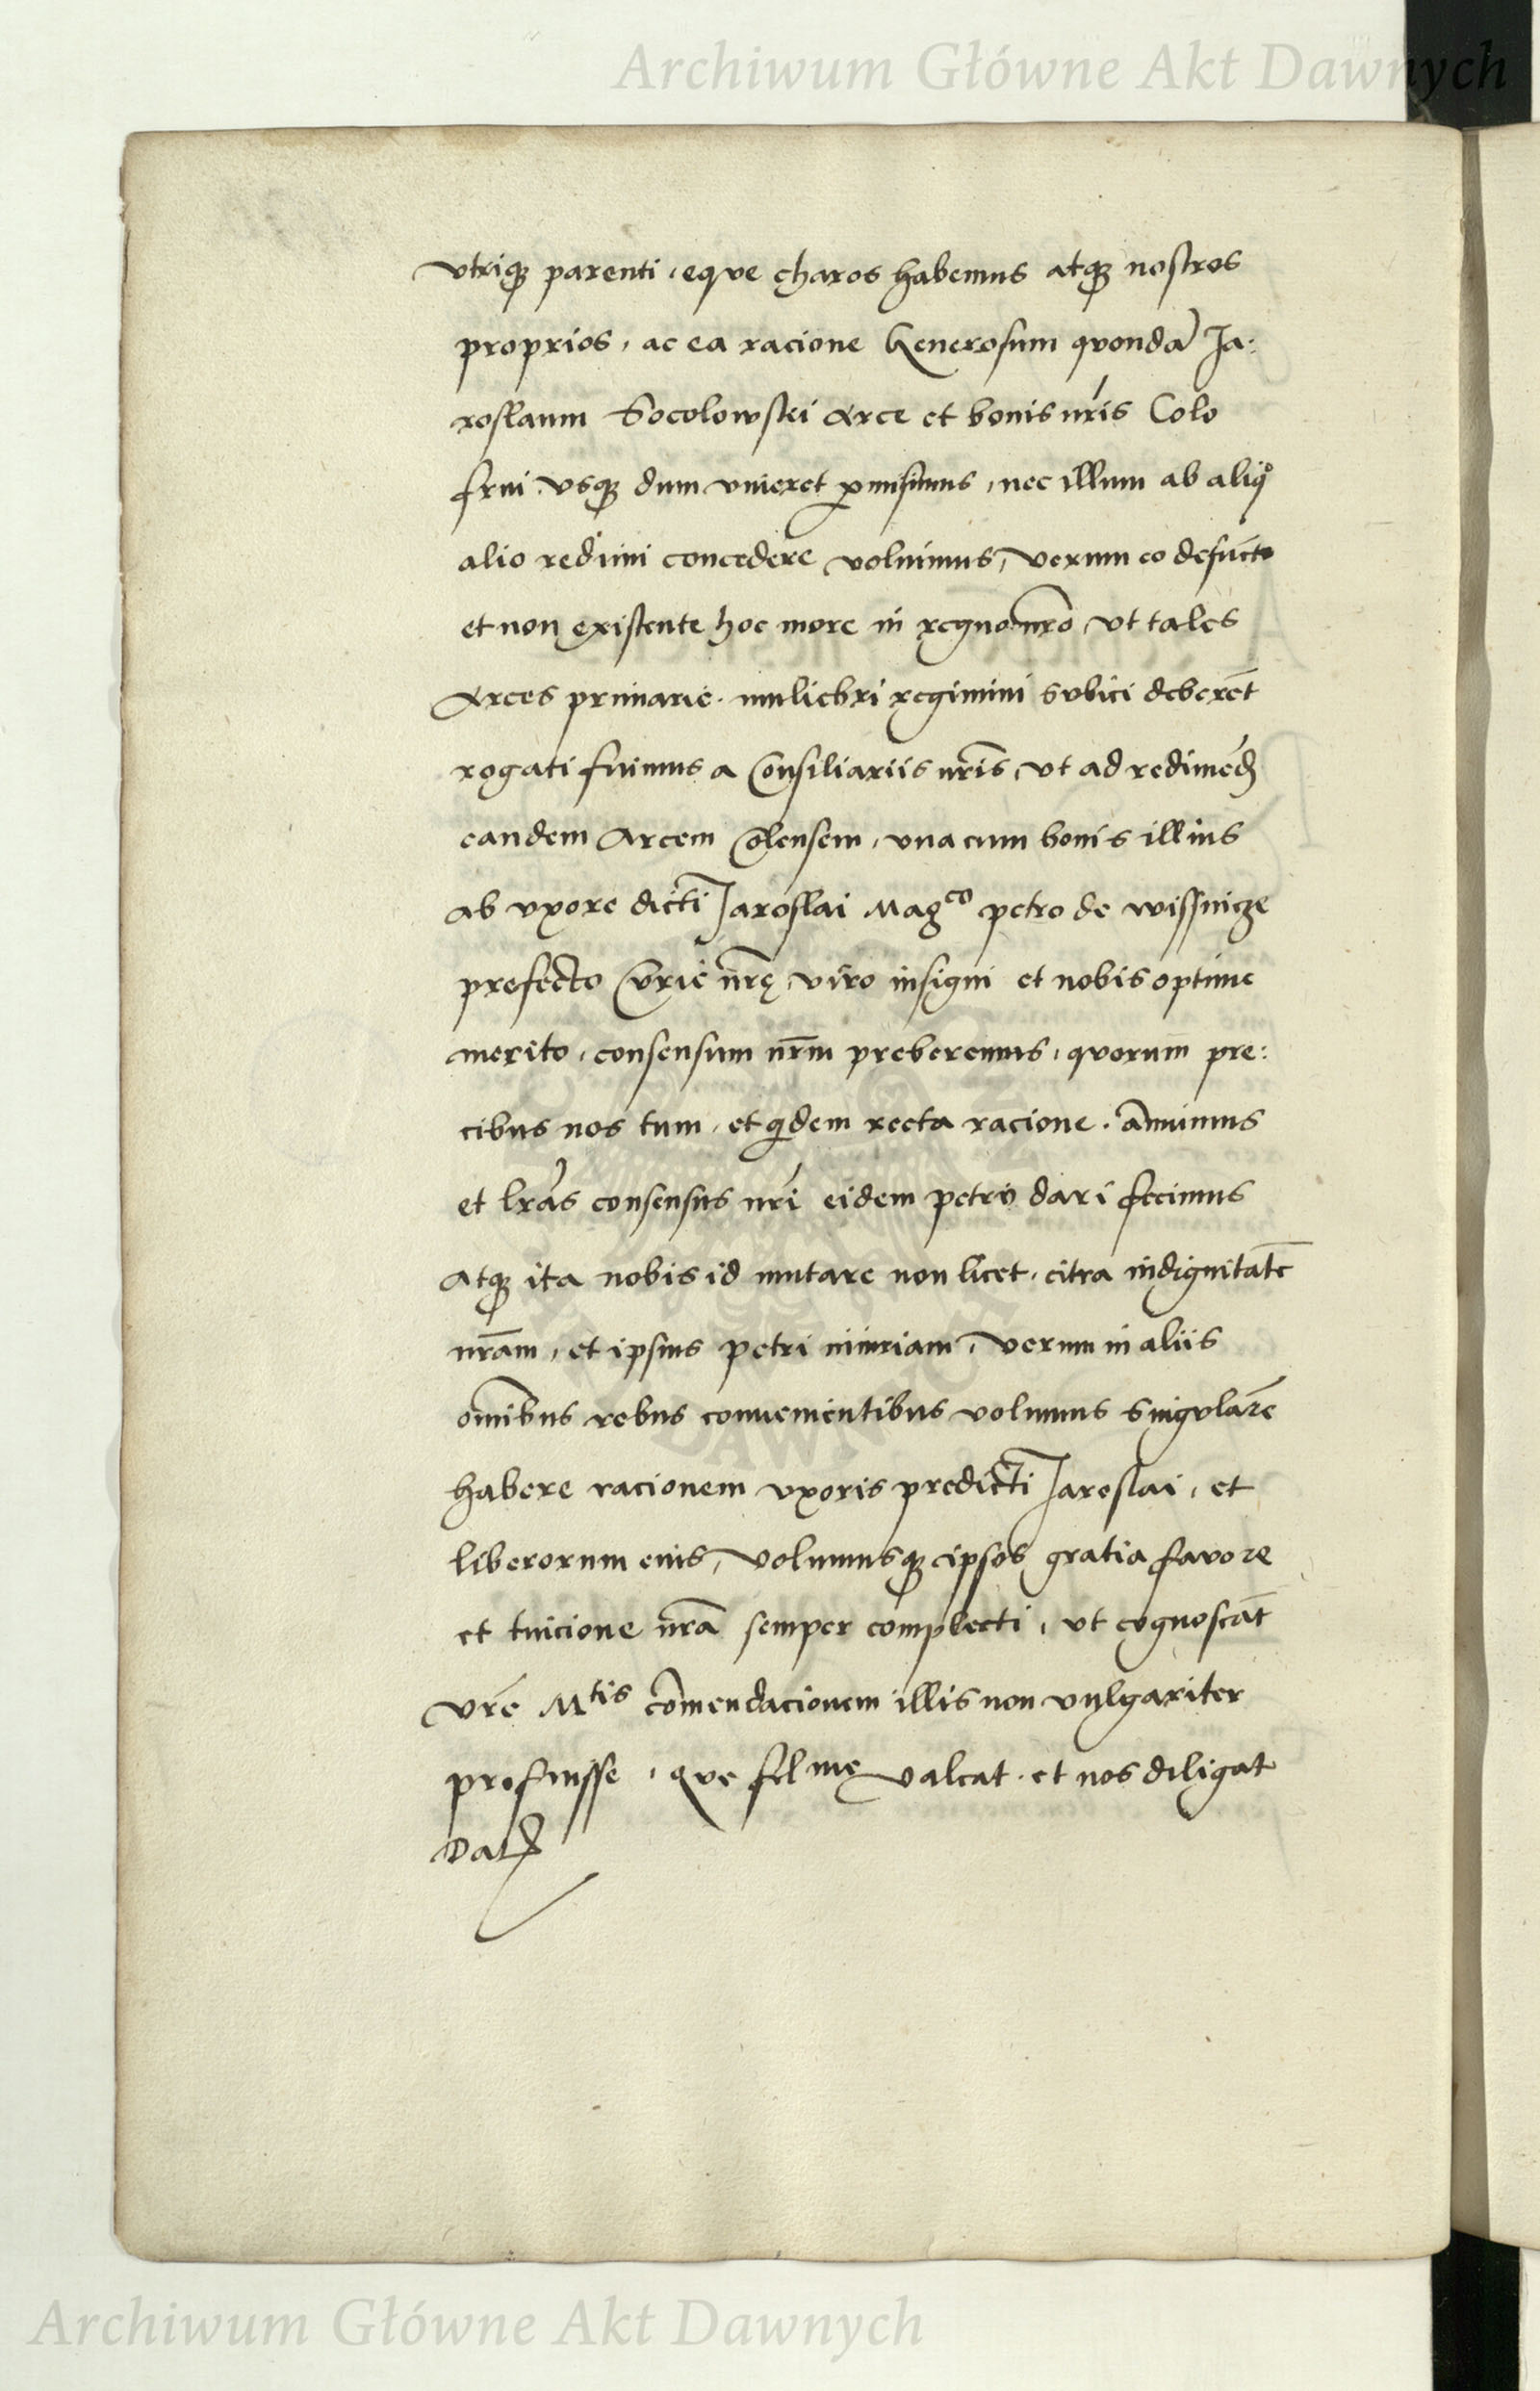 Archiwum Główne Akt Dawnych
vtriq3 parenti, eque charos habemus atq3 nostros
proprios, ac ea racione Generosum quondā Ja:
roslaum Socolowski Arce et bonis nr̄is Colo
frui, vsq3 dum viueret ꝑmisimus, nec illum ab aliqͦ
alio redimi concedere voluimus, verum eo defuncto
et non existente hoc more in regno nr̄o, vt tales
Arces primarie muliebri regimini subici deberēt
rogati fuimus a Consiliariis nr̄is, vt ad redimēd
eandem Arcem Colensem, vna cum bonis illius
ab vxore dicti Jaroslai Magco petro de wissnicze
prefecto Curie nr̄ę, viro insigni et nobis optime
merito, consensum nr̄m preberemus, quorum pre:
cibus nos tum, et qͥdem recta racione, ānuimus
et lr̄as consensus nr̄i eidem petro dari fecimus
Atq3 ita nobis id mutare non licet, citra indignitatē
nr̄am, et ipsius petri iniuriam, verum in aliis
om̄ibus rebus conuenientibus volumus singularē
habere racionem vxoris predicti Jaroslai, et
liberorum eius, volumusq3 ipsos gratia fauore
et tuicione nr̄a semper complecti, vt cognoscāt
vr̄e Mtis cōmendacionem illis non vulgariter
profuisse, que fel me valeat et nos diligat
Dat
Archiwum Główne Akt Dawnych